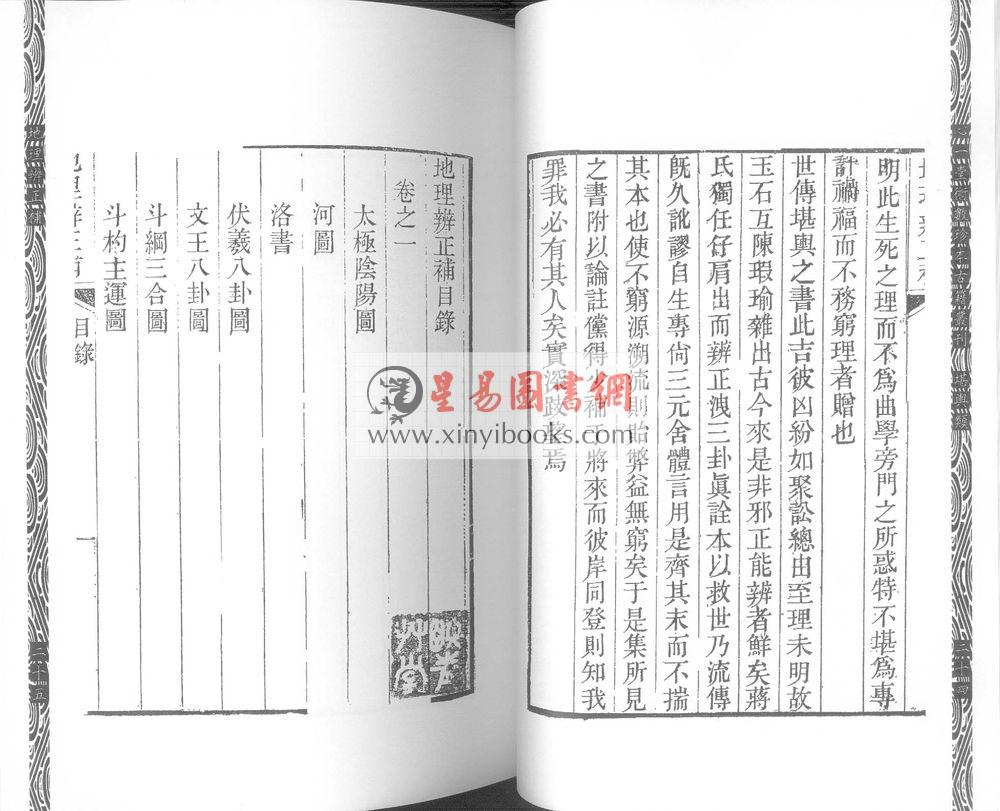 明此生死之理而不爲曲學旁門之所惑特不堪爲專
計禍福而不務窮理者贈也
世傳堪輿之書此吉彼凶紛如聚訟總由至理未明故
玉石互陳瑕瑜雜出古今來是非邪正能辨者鮮矣蔣
氏獨任仔肩出而辨正洩三卦眞詮本以救世乃流傳
旣久訛謬自生專尙三元舍體言用是齊其末而不揣
其本也使不窮源溯流則貽弊益無窮矣于是集所見
之書附以論註儻得少補于將來而彼岸同登則知我
罪我必有其人矣實深跂
焉
二十四
地理辨正補
地理辨正補目錄
卷之一
太極陰陽圖
河圖
洛書
伏羲八卦圖
文王八卦圖
斗綱三合圖
斗杓主運圖
地理辨正補
目錄
一
二十五
星易圖書網
www.xinyibooks.com